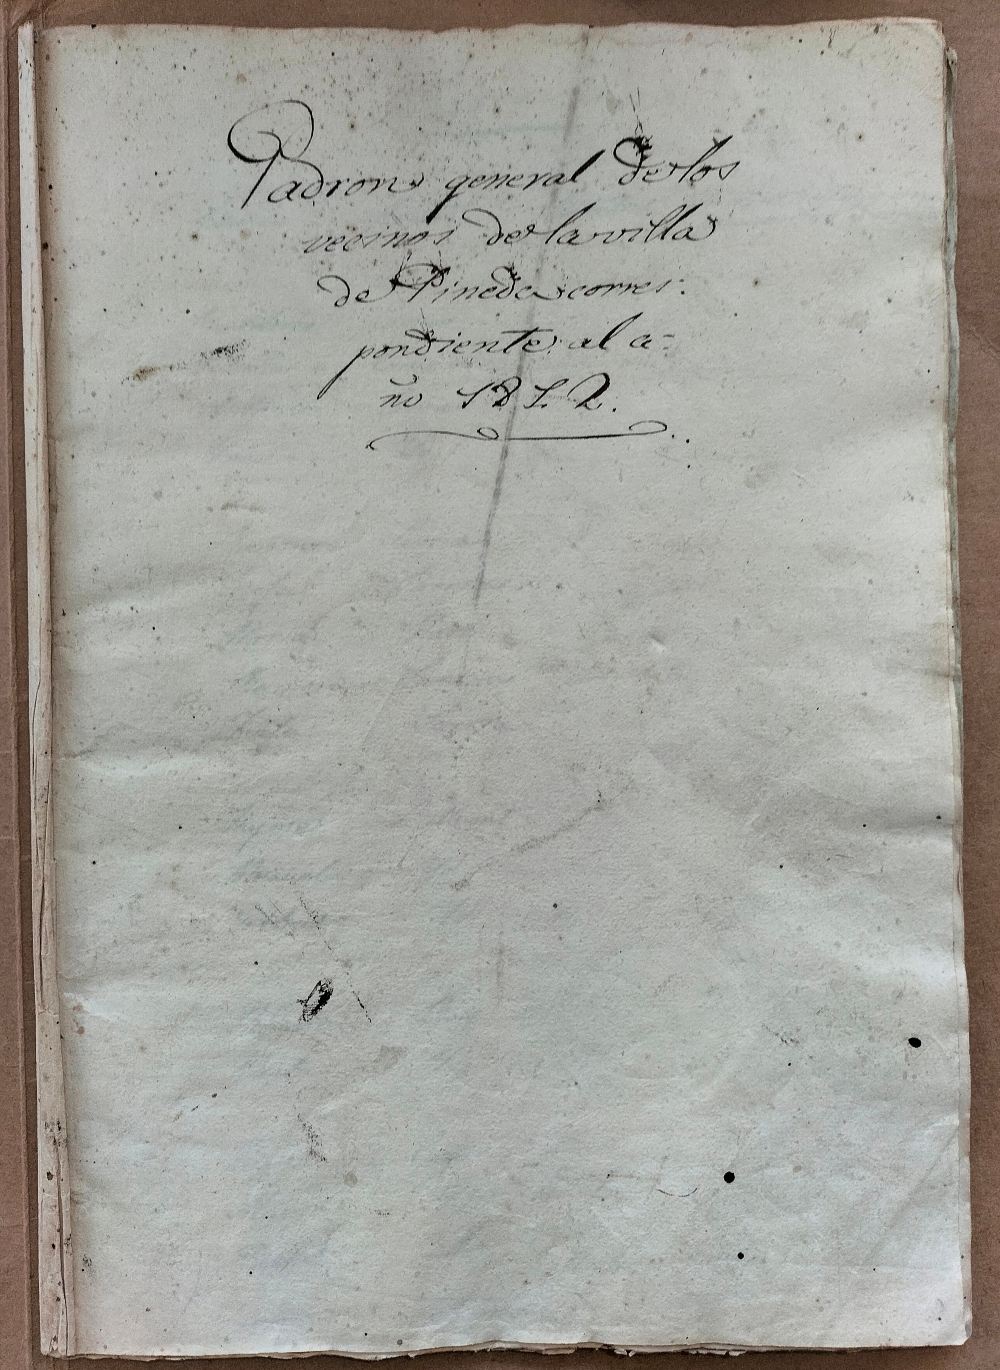 Padron general de los
vecinos de la villa
de Pineda corres:
pondiente al a=
ño 1812.